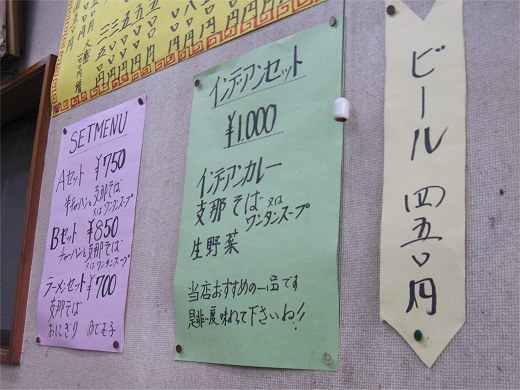 SETMENU
Aセット ¥750
半チャーハンと支那そば
又はワンタンスープ
Bセット ¥850
チャーハンと支那そば
又はワンタンスープ
ラーメンセット ¥700
支那そば
おにぎり ゆで玉子
インデアンセット
¥1.000
インデアンカレー
支那そば又は
ワンタンスープ
生野菜
当店おすすめの一品です
是非一度味わって下さいね!!
ビール 四五〇円